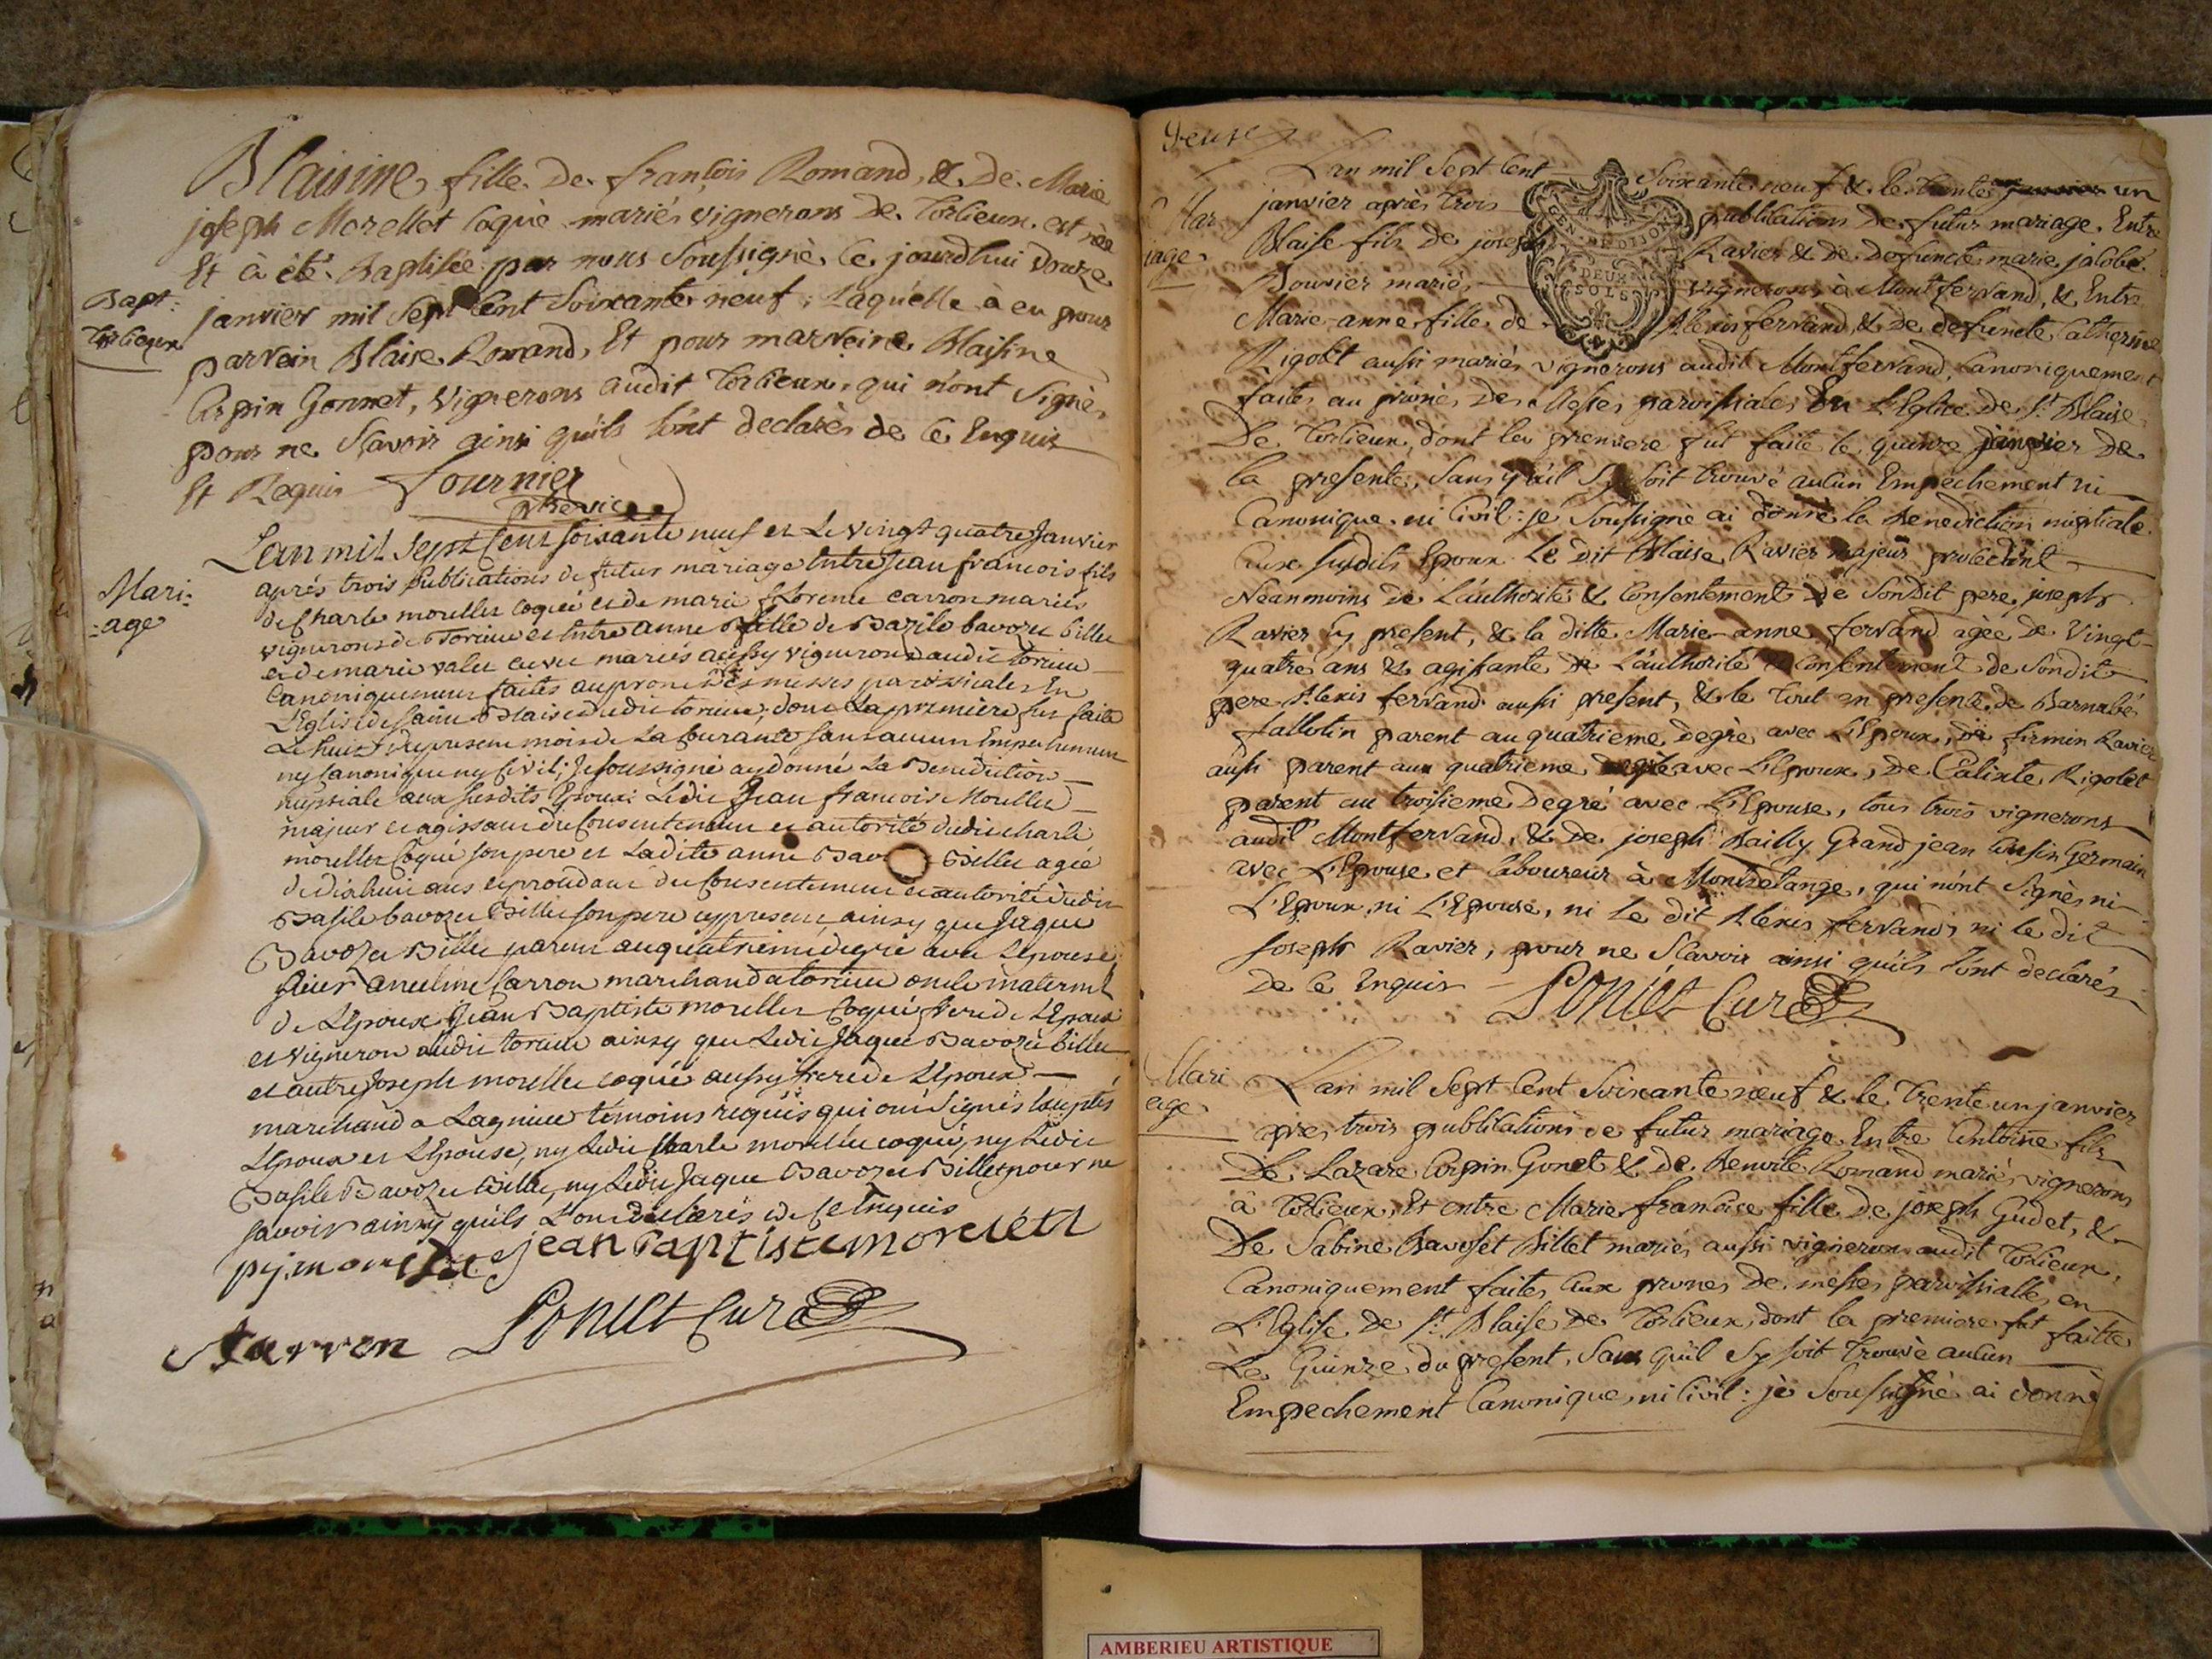 Bapt:
Torcieux
Blaisine, fille De françois Romand, & De Marie
joseph Morellet Coquè mariés vignerons De Torcieux est née
Et à été Baptisée par nous Soussigné le jourdhui Douze
janvier mil Sept Cent Soixante neuf, Laquelle à eu pour
parrein Blaise Romand, Et pour marreine Blaisine
Crepin Gonnet, vignerons audit Torcieux, qui n'ont Signès
pour ne Sçavoir ainsi qu'ils L'ont declarès de ce Enquis
Et Requis Fournier
Mari:
:age
Lan mil Sept Cent soixante neuf et Le vingt quatre Janvier
aprés trois Publications de futur mariage Entre Jean francois fils
de Charle morellet coqué et de marie florence carron mariés
vignerons de Torcieu et Entre anne fille de Bazile bavozet billet
et de marie valet cuvet mariés aussy vignerons audit torcieu
Canoniquement faites au prone des messes paroissiales En
L'Eglise de saint Blaise dudit torcieu, dont La premiere fut faite
Le huit du present mois de La Courante sans aucun Empechement
ny Canonique ny Civil; Je soussigné ay donné La Benediction
nuptiale aux susdits Epoux: Ledit Jean francois Morellet
majeur et agissant du Consentement et autorité dudit charle
morellet Coqué son pere et Ladite anne Bavozet Billet agée
de dixhuit ans et procedant du Consentement et autorité dudit
Basile bavozet Billet son pere cy present, ainsy que Jaque
Bavozet Billet parent au quatrieme degré avec L'Epouse,
sieur anselme Carron marchand a torcieu oncle maternel
de L'Epoux, Jean Baptiste morellet Coqué frere de L'Epoux
et vigneron audit torcieu ainsy que Ledit Jaque Bavozet billet
et autre Joseph morellet coqué aussy frere de L'Epoux
marchand a Lagnieu témoins requis qui ont signés Exceptés
L'Epoux et L'Epouse, ny Ledit Charle morellet coqué, ny Ledit
Basile Bavozet Billet, ny Ledit Jaque Bavozet Billet pour ne
savoir ainsy qu'ils L'ont declarés de ce Enquis
jean Baptiste morelett
Carron Poncet Curé
Mar
iage
Lan mil Sept Cent Soixante neuf & le trente janvier un
janvier après trois publications De futur mariage Entre
Blaise fils de joseph Ravier & De Defuncte marie jacobé
Bouvier mariés, vignerons à Montferrand, & Entre
Marie-anne fille de Alexis ferrand, & De defuncte Catherine
Rigolet aussi mariés vignerons audit Montferrand, Canoniquement
faites au prônes Des Messes paroissiales En L'Eglise de St. Blaise
De Torcieux, dont la premiere fut faite le quinze janvier De
la presente, Sans qu'il Sy soit trouvé aucun Empechement ni
Canonique ni Civil: je Soussigné ai donné la Benediction nuptiale
aux Susdits Epoux Le dit Blaise Ravier majeur procedant
Néanmoins de L'authorité & Consentement De Sondit pere joseph
Ravier Cy present, & la ditte Marie-anne ferrand agée De Vingt-
quatre ans & agissante de L'authorité & Consentement de Sondit
pere Alexis ferrand aussi present, & le tout en presence de Barnabé
Tallotin parent au quatrieme degrè avec L'Epoux, De firmin Ravier
aussi parent au quatrieme degrè avec L'Epoux, De Calixte Rigolet
parent au troisieme Degré avec L'Epouse, tous trois vignerons
audit Montferrand, & De joseph Bailly Grand jean Cousin Germain
avec L'Epouse et laboureur à Montrelange, qui n'ont Signès ni
L'Epoux ni L'Epouse, ni Le dit Alexis ferrand, ni le dit
Joseph Ravier, pour ne Sçavoir ainsi qu'ils L'ont declarés
De ce Enquis Poncet Curé
Mari
age
Lan mil Sept Cent Soixante neuf & le Trente un janvier
apres trois publications de futur mariage Entre Antoine fils
De Lazare Crepin Gonet & de Benoite Romand mariés, vignerons
à Torcieux, Et entre Marie francoise fille De joseph Gudet, &
De Sabine Bavoset Billet mariés aussi vignerons audit Torcieux,
Canoniquement faites aux prones De messes paroissialles en
L'Eglise De St. Blaise De Torcieux, dont la premiere fut faitte
Le Quinze du present, Sans qu'il Sy soit trouvé aucun
Empechement Canonique, ni Civil: je Soussigné ai donné
GEN. DE DIJON
DEUX
SOLS
AMBERIEU ARTISTIQUE